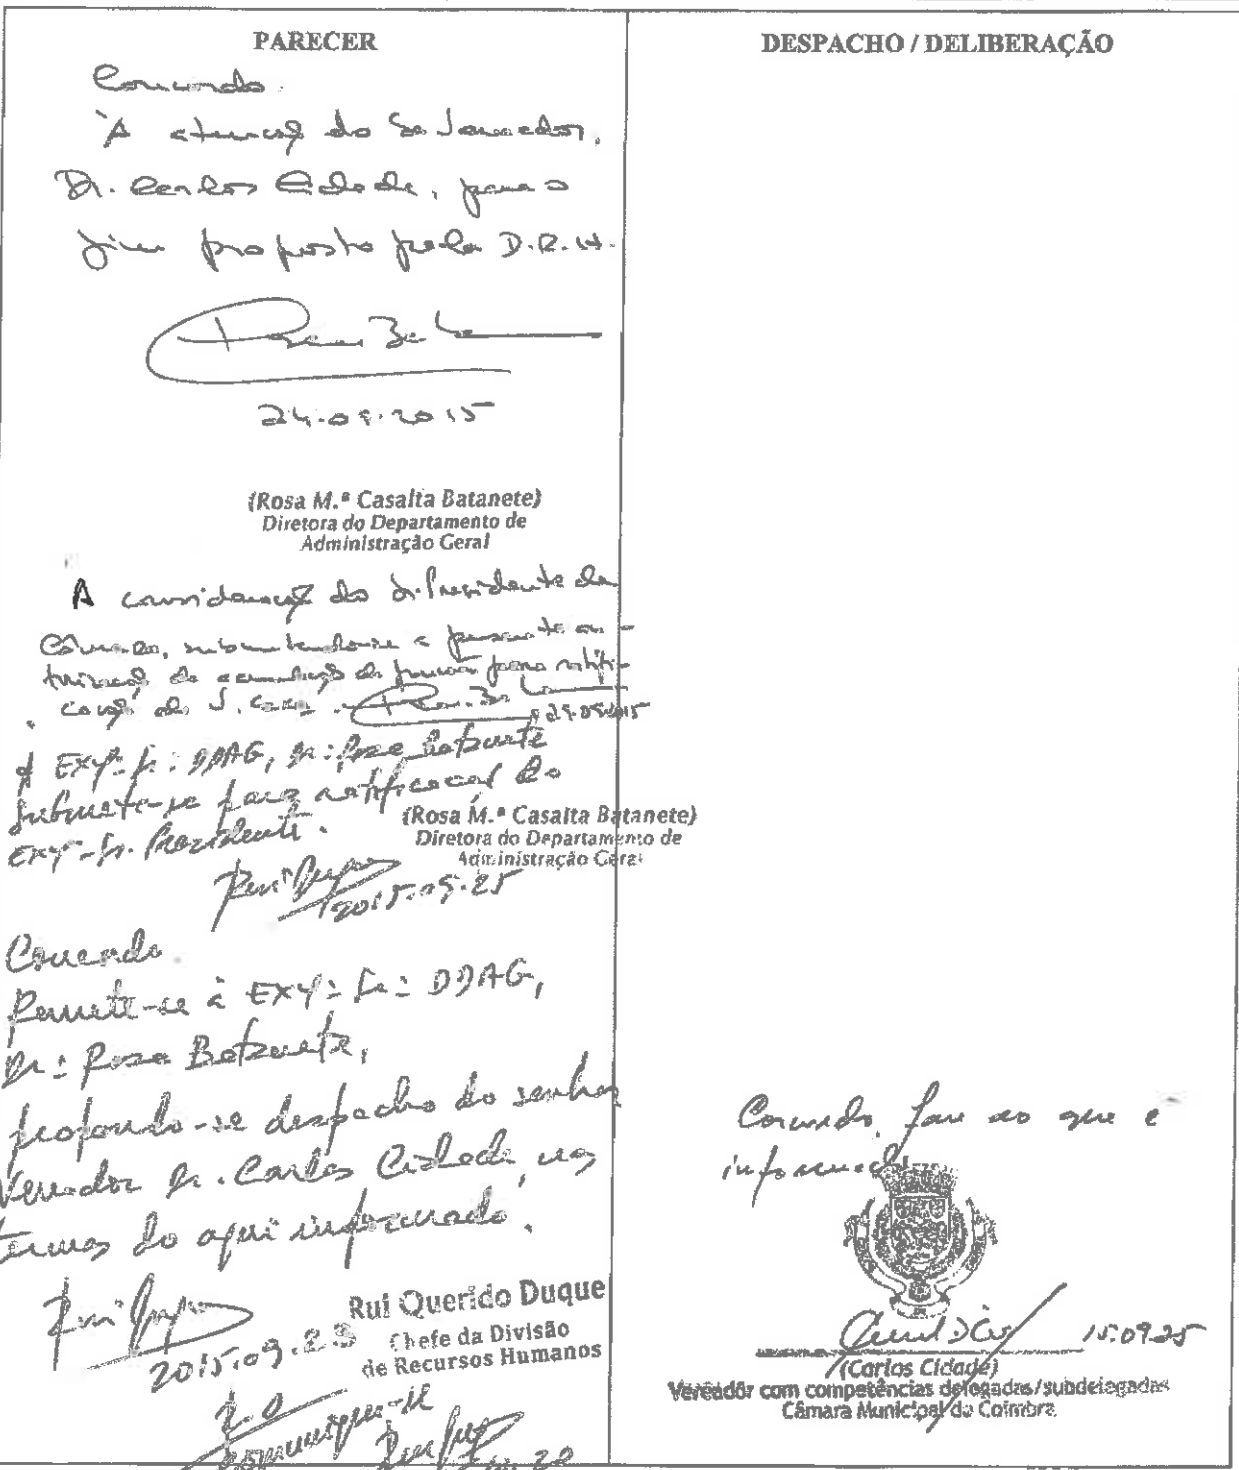 PARECER
Concordo.
À atenção do Sr. Vereador,
Dr. Carlos Cidade, para o
fim proposto pela D.R.H.
24.09.2015
(Rosa M.ª Casalta Batanete)
Diretora do Departamento de
Administração Geral
À consideração do Sr. Presidente da
Câmara, submetendo-se a presente au-
torização de acumulação de funções para ratifi-
cação de S. Exa.
(Rosa M.ª Casalta Batanete)
Diretora do Departamento de
Administração Geral
À Exmª Srª DDAG, Drª Rosa Batanete
Submete-se para ratificação do
Exmº Sr. Presidente.
2015.09.25
Concordo.
Remete-se à Exmª Srª DDAG,
Drª Rosa Batanete,
propondo-se despacho do senhor
Vereador Dr. Carlos Cidade, nos
termos do aqui informado.
2015.09.23
Rui Querido Duque
Chefe da Divisão
de Recursos Humanos
Comunique-se
DESPACHO / DELIBERAÇÃO
Concordo, face ao que é
informado
15.09.25
(Carlos Cidade)
Vereador com competências delegadas/subdelegadas
Câmara Municipal de Coimbra